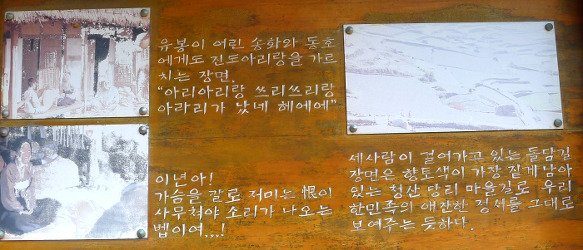 유봉이 어린 송화와 동호
에게도 진도아리랑을 가르
치는 장면.
“아리아리랑 쓰리쓰리랑
아라리가 났네 헤에에”
이년아!
가슴을 칼로 저미는 恨이
사무쳐야 소리가 나오는
벱이여...!
세사람이 걸어가고 있는 돌담길
장면은 향토색이 가장 짙게 남아
있는 청산 당리 마을길로 우리
한민족의 애잔한 정서를 그대로
보여주는 듯하다.